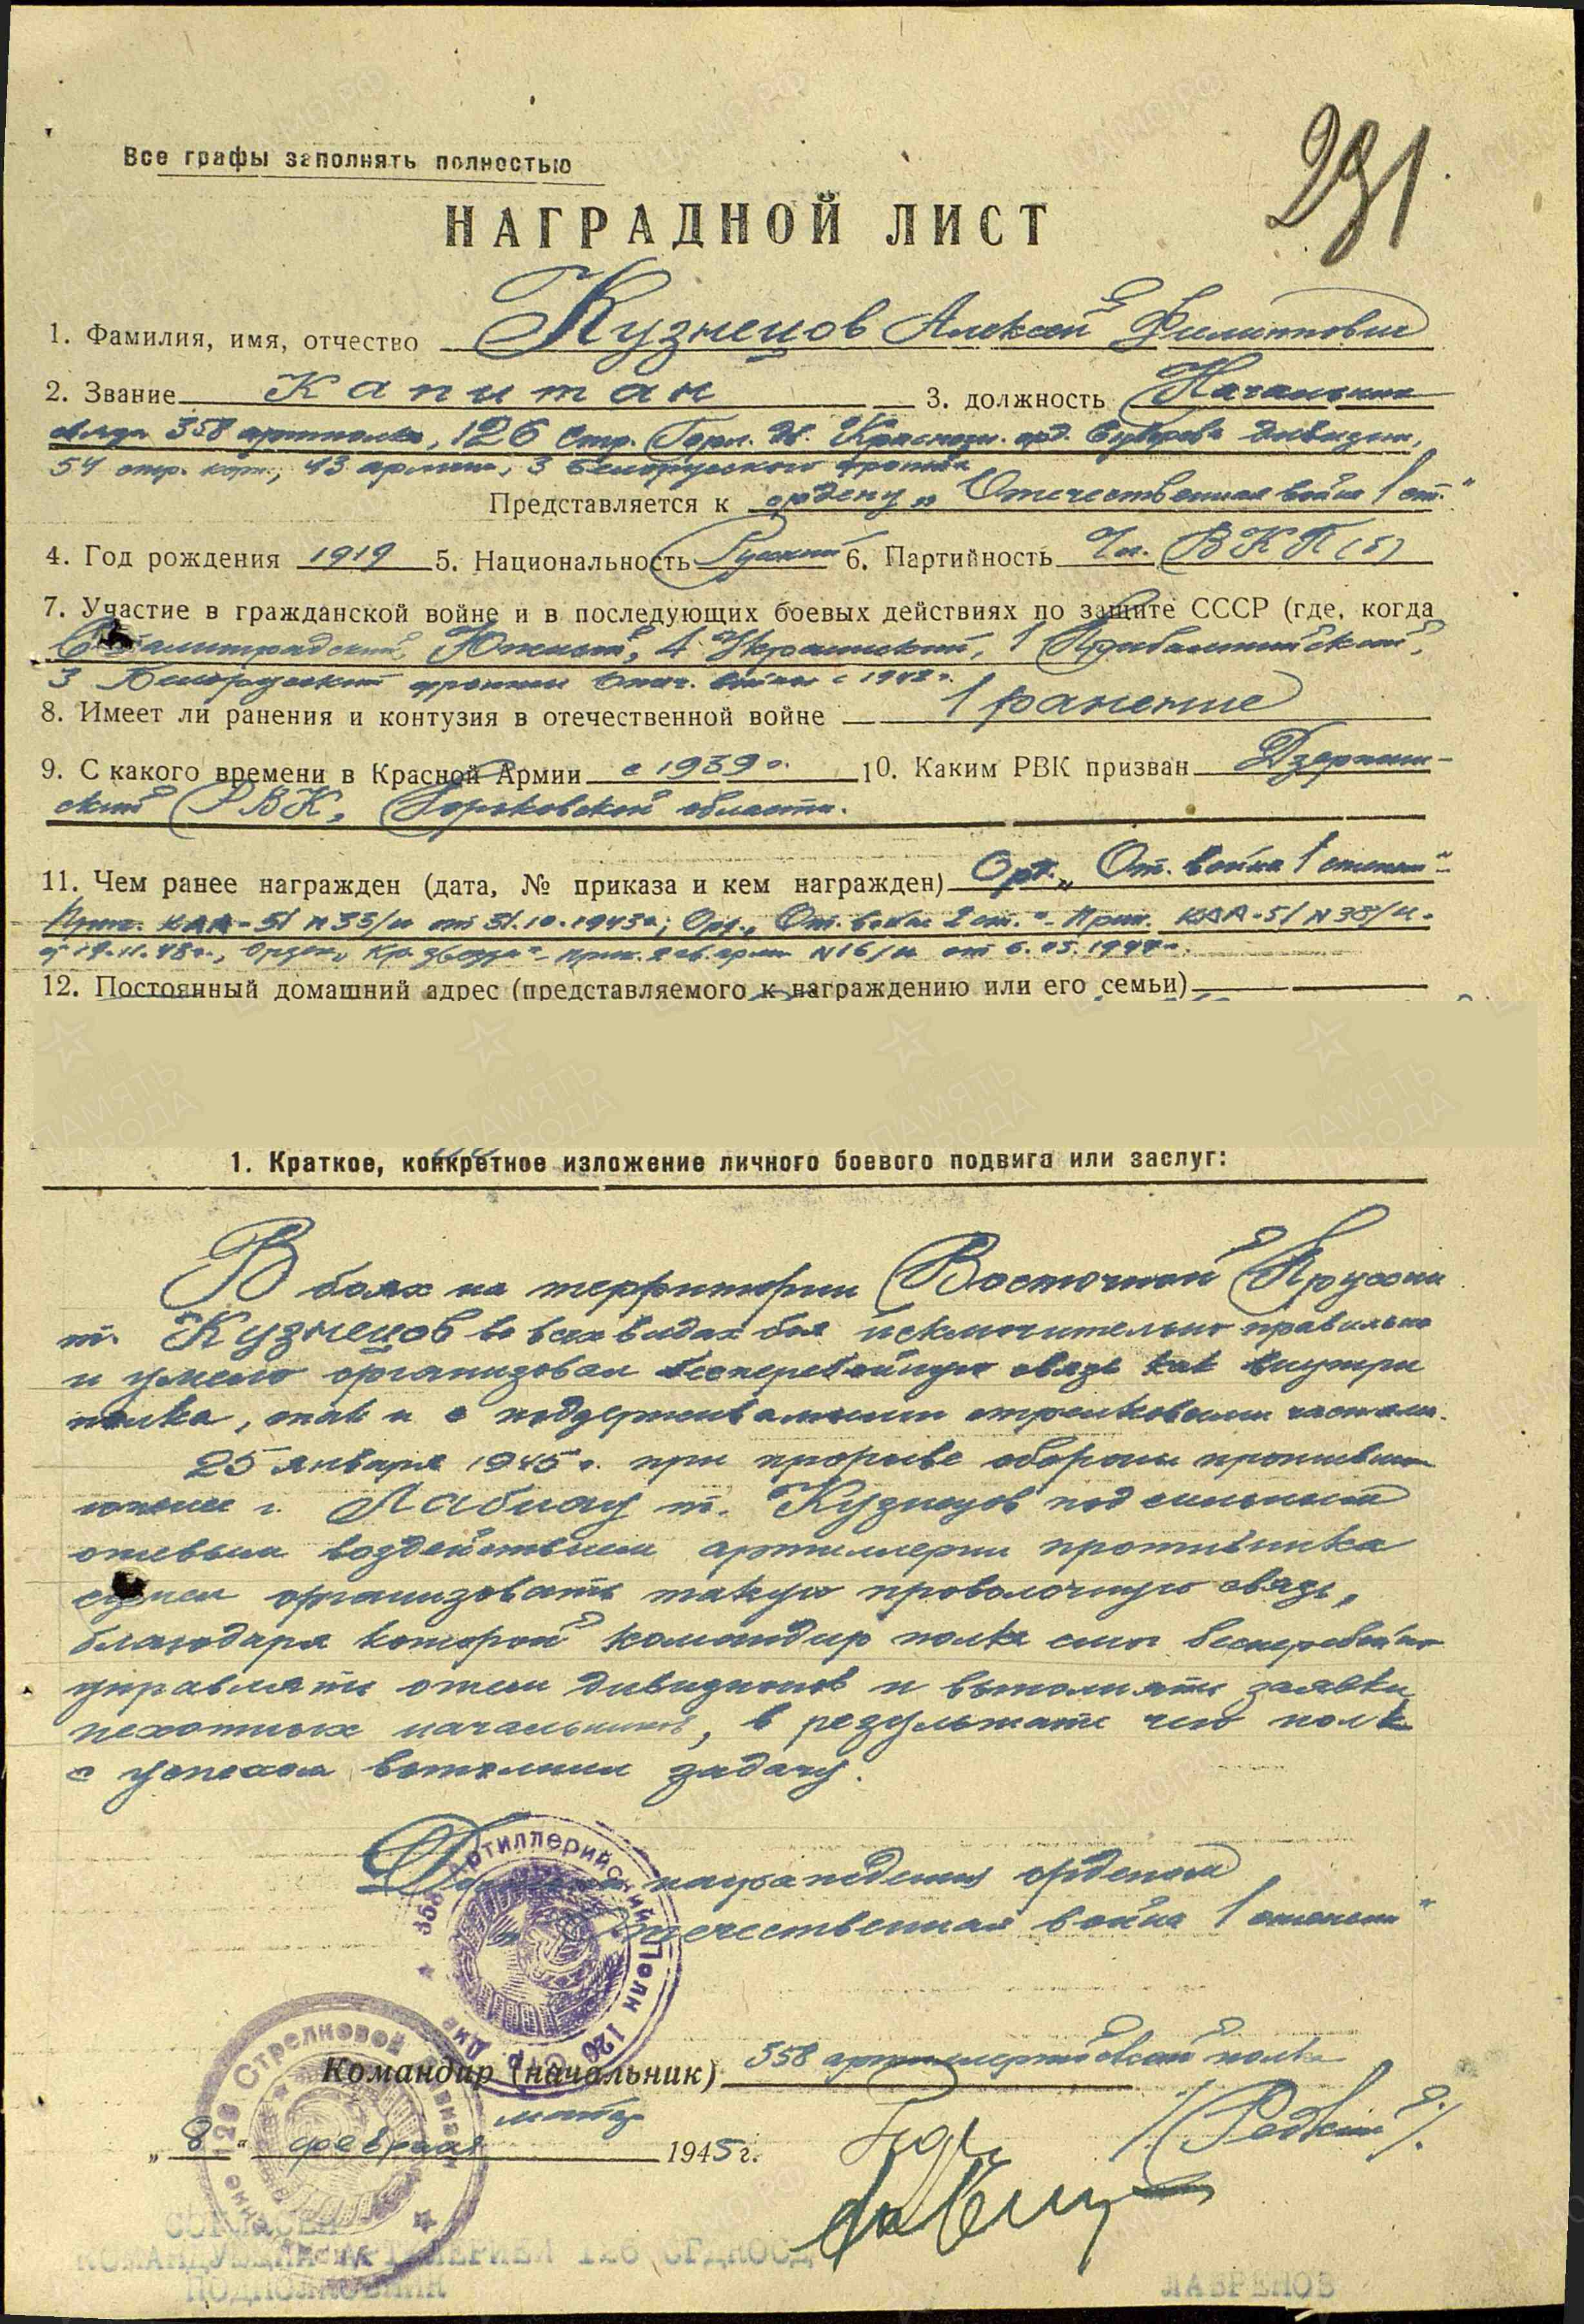 291
Все графы заполнять полностью
НАГРАДНОЙ ЛИСТ
1. Фамилия, имя, отчество Кузнецов Алексей Филиппович
2. Звание Капитан 3. должность Начальник
связи 358 артполка, 126 Стр. Горл. дв. Краснозн. орд. Суворова дивизии,
54 стр. корп., 43 армии, 3 Белорусского фронта
Представляется к ордену „Отечественная война 1 ст."
4. Год рождения 1919 5. Национальность Русский 6. Партийность Чл. ВКП(б)
7. Участие в гражданской войне и в последующих боевых действиях по защите СССР (где, когда
Сталинградский, Южный, 4 Украинский, 1 Прибалтийский,
3 Белорусский фронты Отеч. войны с 1942 г.
8. Имеет ли ранения и контузия в отечественной войне 1 ранение
9. С какого времени в Красной Армии с 1939 г. 10. Каким РВК призван Дзержин-
ский РВК, Горьковской области.
11. Чем ранее награжден (дата, № приказа и кем награжден) Орд. „От. война 1 степени"-
Прик. 51 N 33/н от 31.10.1943г; Орд. „От. война 2 ст."- Прик. 51 N 38/н.
19.11.43г., Орден „Кр. звезда"- прик. 2 гв. арм. N 16/н от 6.05.1944г.
12. Постоянный домашний адрес (представляемого к награждению или его семьи)
1. Краткое, конкретное изложение личного боевого подвига или заслуг:
В боях на территории Восточной Пруссии
т. Кузнецов во всех видах боя исключительно правильно
и умело организовал бесперебойную связь как внутри
полка, так и с поддерживаемыми стрелковыми частями.
25 января 1945 г. при прорыве обороны противника
южнее г. Лабиау т. Кузнецов под сильным
огневым воздействием артиллерии противника
сумел организовать такую проволочную связь,
благодаря которой командир полка смог бесперебойно
управлять огнем дивизионов и выполнять заявки
пехотных начальников, в результате чего полк
с успехом выполнил задачу.
Достоин награждения орденом
„Отечественная война 1 степени"
358 Артиллерийский Полк 126 Стр. Див
Командир (начальник) 358 артиллерийского полка
126 Стрелковой Дивизии
майор /Редкий/.
„8" февраля 1945 г.
СОГЛАСЕН
КОМАНДУЮЩИЙ АРТИЛЛЕРИЕЙ 126 СГДКОСД
ПОДПОЛКОВНИК ЛАВРЕНОВ